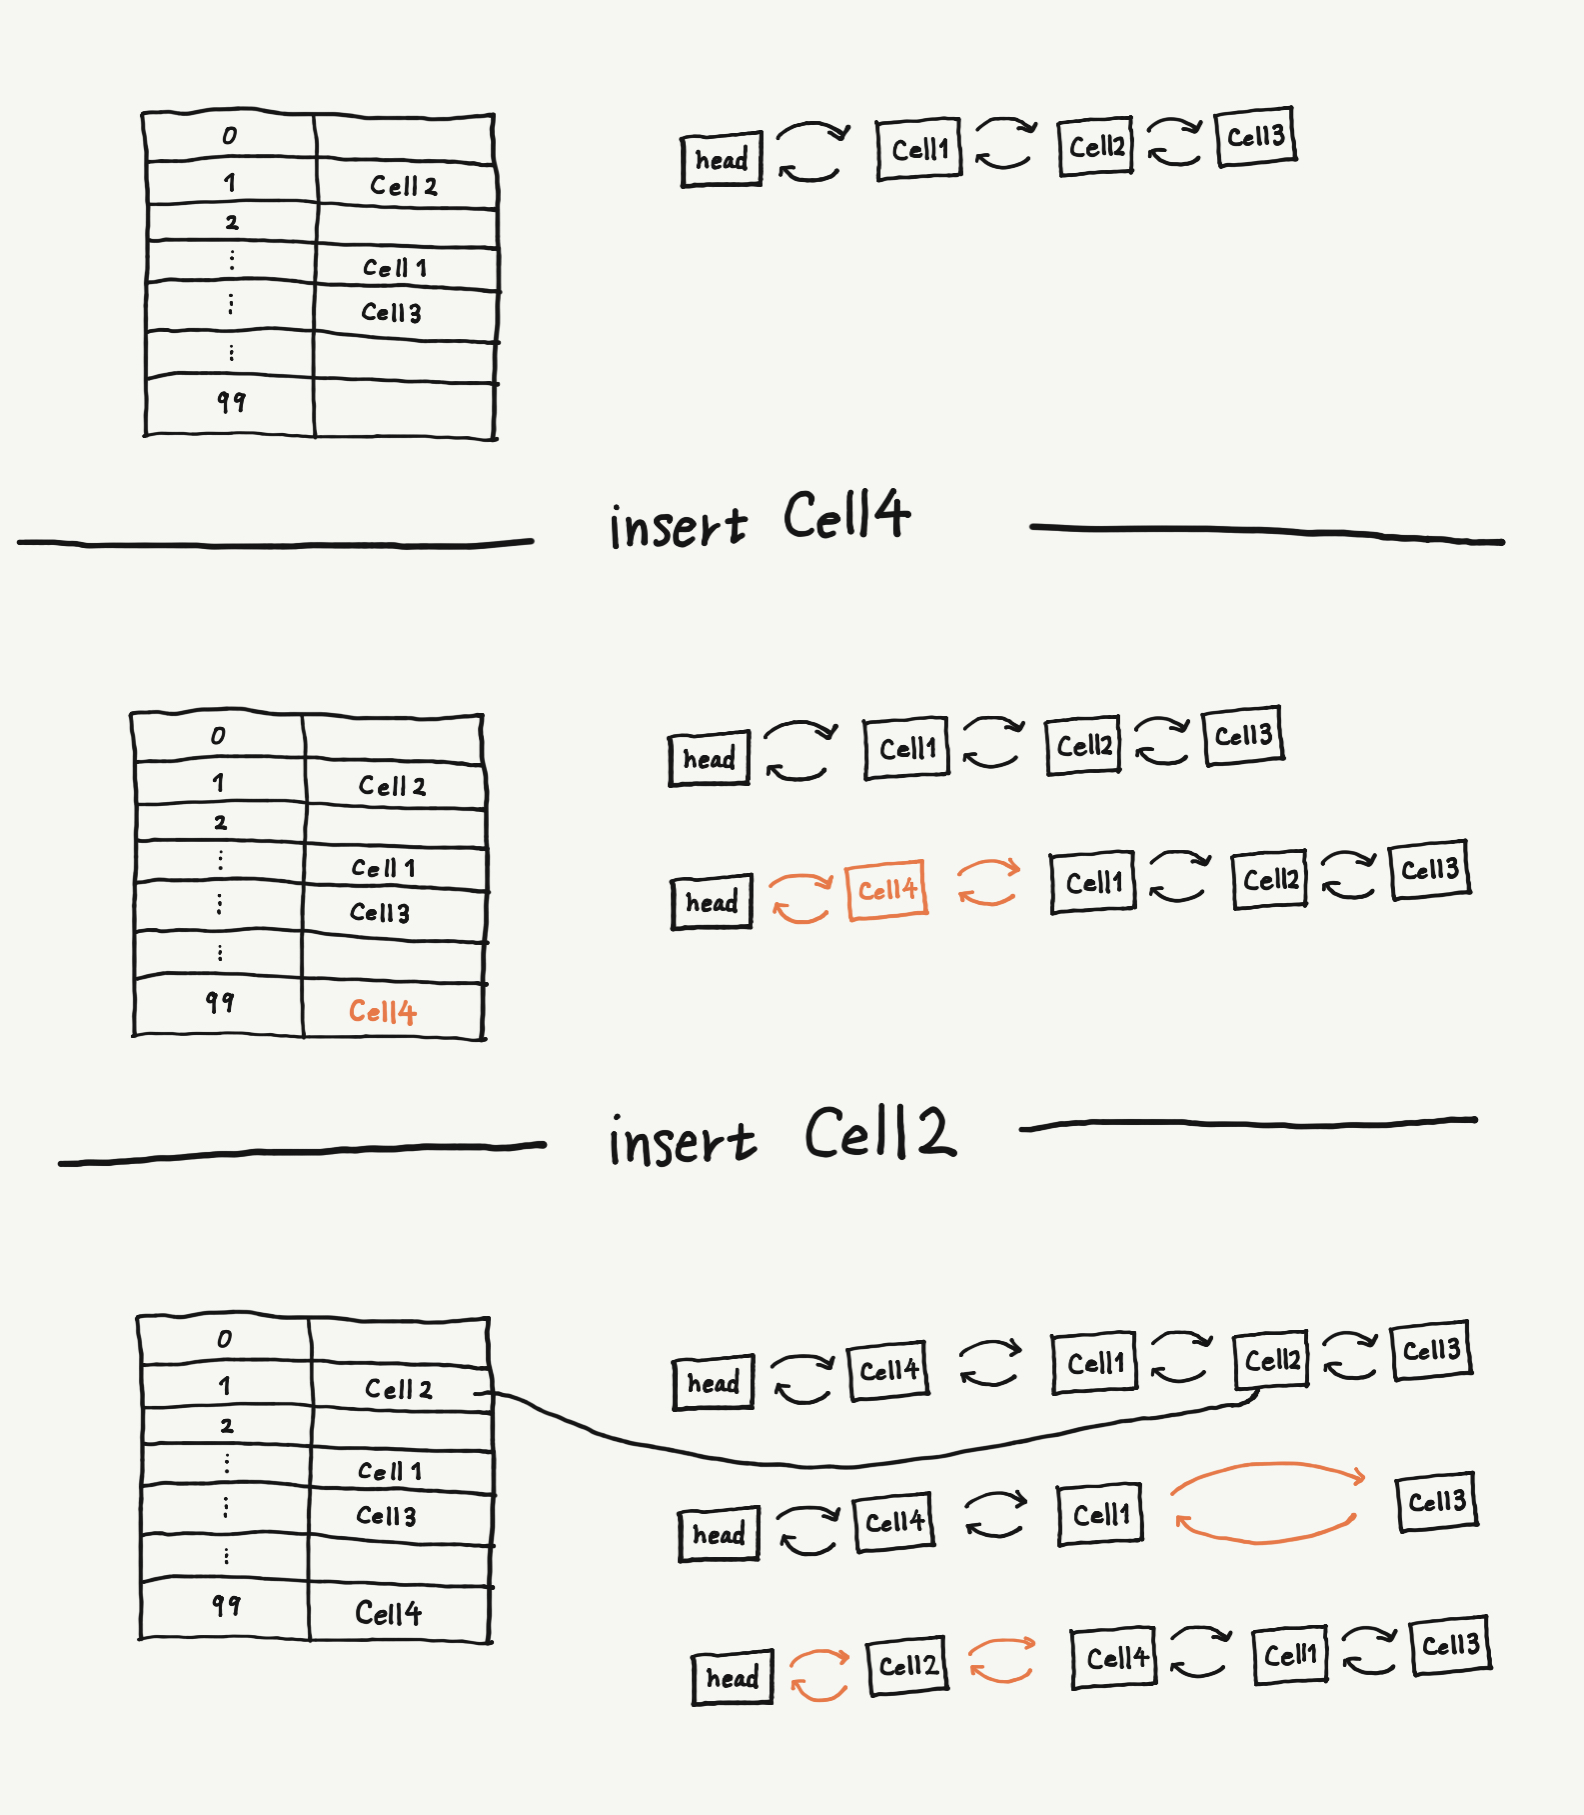 0
1 Cell2
2
⋮ Cell1
⋮ Cell3
⋮
99
head Cell1 Cell2 Cell3
insert Cell4
0
1 Cell2
2
⋮ Cell1
⋮ Cell3
⋮
99 Cell4
head Cell1 Cell2 Cell3
head Cell4 Cell1 Cell2 Cell3
insert Cell2
0
1 Cell2
2
⋮ Cell1
⋮ Cell3
⋮
99 Cell4
head Cell4 Cell1 Cell2 Cell3
head Cell4 Cell1 Cell3
head Cell2 Cell4 Cell1 Cell3